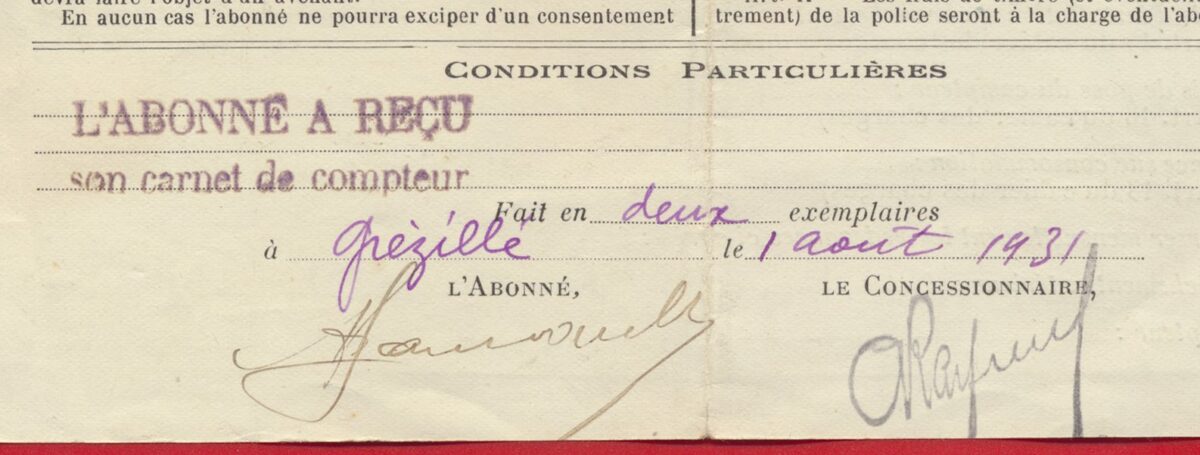 devra faire l'objet d'un avenant.
En aucun cas l'abonné ne pourra exciper d'un consentement
trement) de la police seront à la charge de l'abo
CONDITIONS PARTICULIÈRES
L'ABONNÉ A REÇU
son carnet de compteur
Fait en deux exemplaires
à Grézillé le 1 août 1931
L'ABONNÉ, LE CONCESSIONNAIRE,